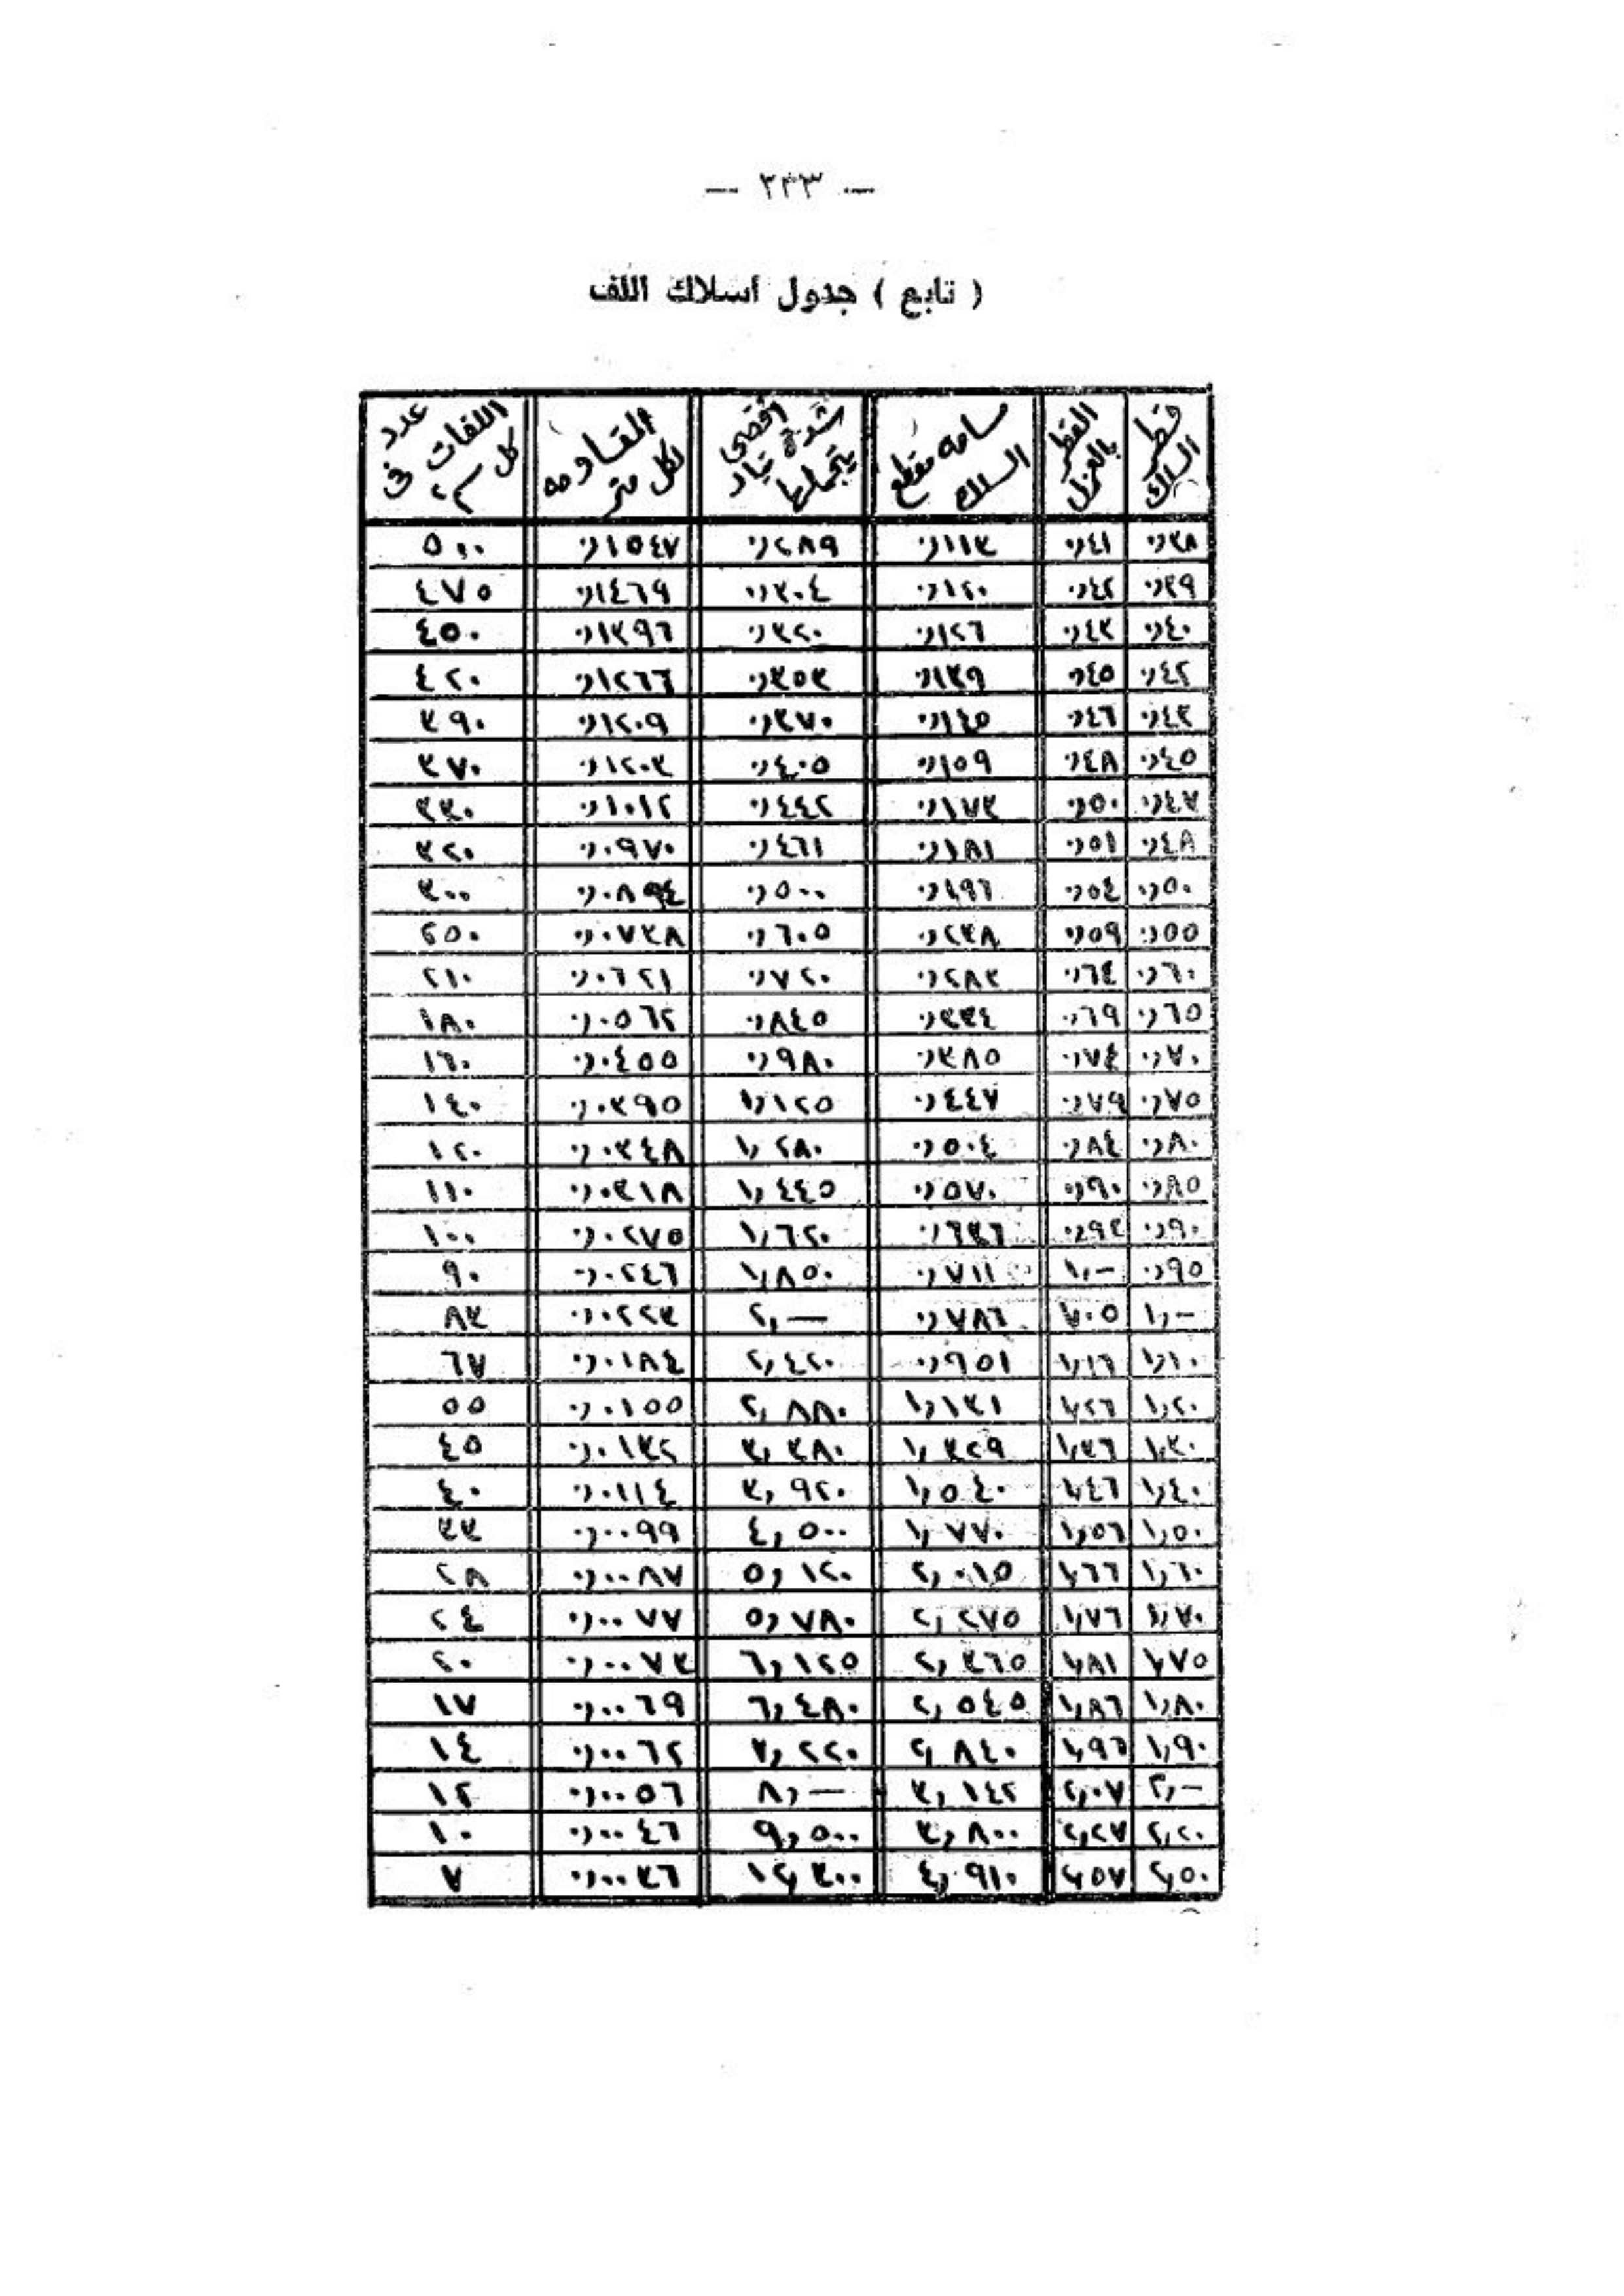 — ٢٣٣ —
( تابع ) جدول أسلاك اللف
قطر السلك القطر بالعزل مساحة مقطع السلك أقصى شدة تيار يتحملها المقاومة لكل متر عدد اللفات فى كل سم٢
٠,٣٨ ٠,٤١ ٠,١١٣ ٠,٢٨٩ ٠,١٥٤٧ ٥٠٠
٠,٣٩ ٠,٤٢ ٠,١٢٠ ٠,٣٠٤ ٠,١٤٦٩ ٤٧٥
٠,٤٠ ٠,٤٣ ٠,١٢٦ ٠,٣٢٠ ٠,١٣٩٦ ٤٥٠
٠,٤٢ ٠,٤٥ ٠,١٣٩ ٠,٣٥٣ ٠,١٢٦٦ ٤٢٠
٠,٤٣ ٠,٤٦ ٠,١٤٥ ٠,٣٧٠ ٠,١٢٠٩ ٣٩٠
٠,٤٥ ٠,٤٨ ٠,١٥٩ ٠,٤٠٥ ٠,١٢٠٣ ٣٧٠
٠,٤٧ ٠,٥٠ ٠,١٧٣ ٠,٤٤٢ ٠,١٠١٢ ٣٣٠
٠,٤٨ ٠,٥١ ٠,١٨١ ٠,٤٦١ ٠,٠٩٧٠ ٣٢٠
٠,٥٠ ٠,٥٤ ٠,١٩٦ ٠,٥٠٠ ٠,٠٨٩٤ ٣٠٠
٠,٥٥ ٠,٥٩ ٠,٢٣٨ ٠,٦٠٥ ٠,٠٧٣٨ ٢٥٠
٠,٦٠ ٠,٦٤ ٠,٢٨٣ ٠,٧٢٠ ٠,٠٦٢١ ٢١٠
٠,٦٥ ٠,٦٩ ٠,٣٣٤ ٠,٨٤٥ ٠,٠٥٦٢ ١٨٠
٠,٧٠ ٠,٧٤ ٠,٣٨٥ ٠,٩٨٠ ٠,٠٤٥٥ ١٦٠
٠,٧٥ ٠,٧٩ ٠,٤٤٧ ١,١٢٥ ٠,٠٣٩٥ ١٤٠
٠,٨٠ ٠,٨٤ ٠,٥٠٤ ١,٢٨٠ ٠,٠٣٤٨ ١٢٠
٠,٨٥ ٠,٩٠ ٠,٥٧٠ ١,٤٤٥ ٠,٠٣١٨ ١١٠
٠,٩٠ ٠,٩٤ ٠,٦٣٦ ١,٦٢٠ ٠,٠٢٧٥ ١٠٠
٠,٩٥ ١,— ٠,٧١١ ١,٨٥٠ ٠,٠٢٤٦ ٩٠
١,— ٧٠٥ ٠,٧٨٦ ٢,— ٠,٠٢٢٣ ٨٣
١,١٠ ١,١٦ ٠,٩٥١ ٢,٤٢٠ ٠,٠١٨٤ ٦٧
١,٢٠ ١,٢٦ ١,١٣١ ٢,٨٨٠ ٠,٠١٥٥ ٥٥
١,٣٠ ١,٣٦ ١,٣٢٩ ٣,٣٨٠ ٠,٠١٣٢ ٤٥
١,٤٠ ١,٤٦ ١,٥٤٠ ٣,٩٢٠ ٠,٠١١٤ ٤٠
١,٥٠ ١,٥٦ ١,٧٧٠ ٤,٥٠٠ ٠,٠٠٩٩ ٣٣
١,٦٠ ١,٦٦ ٢,٠١٥ ٥,١٢٠ ٠,٠٠٨٧ ٢٨
١,٧٠ ١,٧٦ ٢,٢٧٥ ٥,٧٨٠ ٠,٠٠٧٧ ٢٤
١,٧٥ ١,٨١ ٢,٣٦٥ ٦,١٢٥ ٠,٠٠٧٣ ٢٠
١,٨٠ ١,٨٦ ٢,٥٤٥ ٦,٤٨٠ ٠,٠٠٦٩ ١٧
١,٩٠ ١,٩٦ ٢,٨٤٠ ٧,٢٢٠ ٠,٠٠٦٢ ١٤
٢,— ٢,٠٧ ٣,١٤٢ ٨,— ٠,٠٠٥٦ ١٢
٢,٢٠ ٢,٢٧ ٣,٨٠٠ ٩,٥٠٠ ٠,٠٠٤٦ ١٠
٢,٥٠ ٢,٥٧ ٤,٩١٠ ١٢,٣٠٠ ٠,٠٠٣٦ ٧